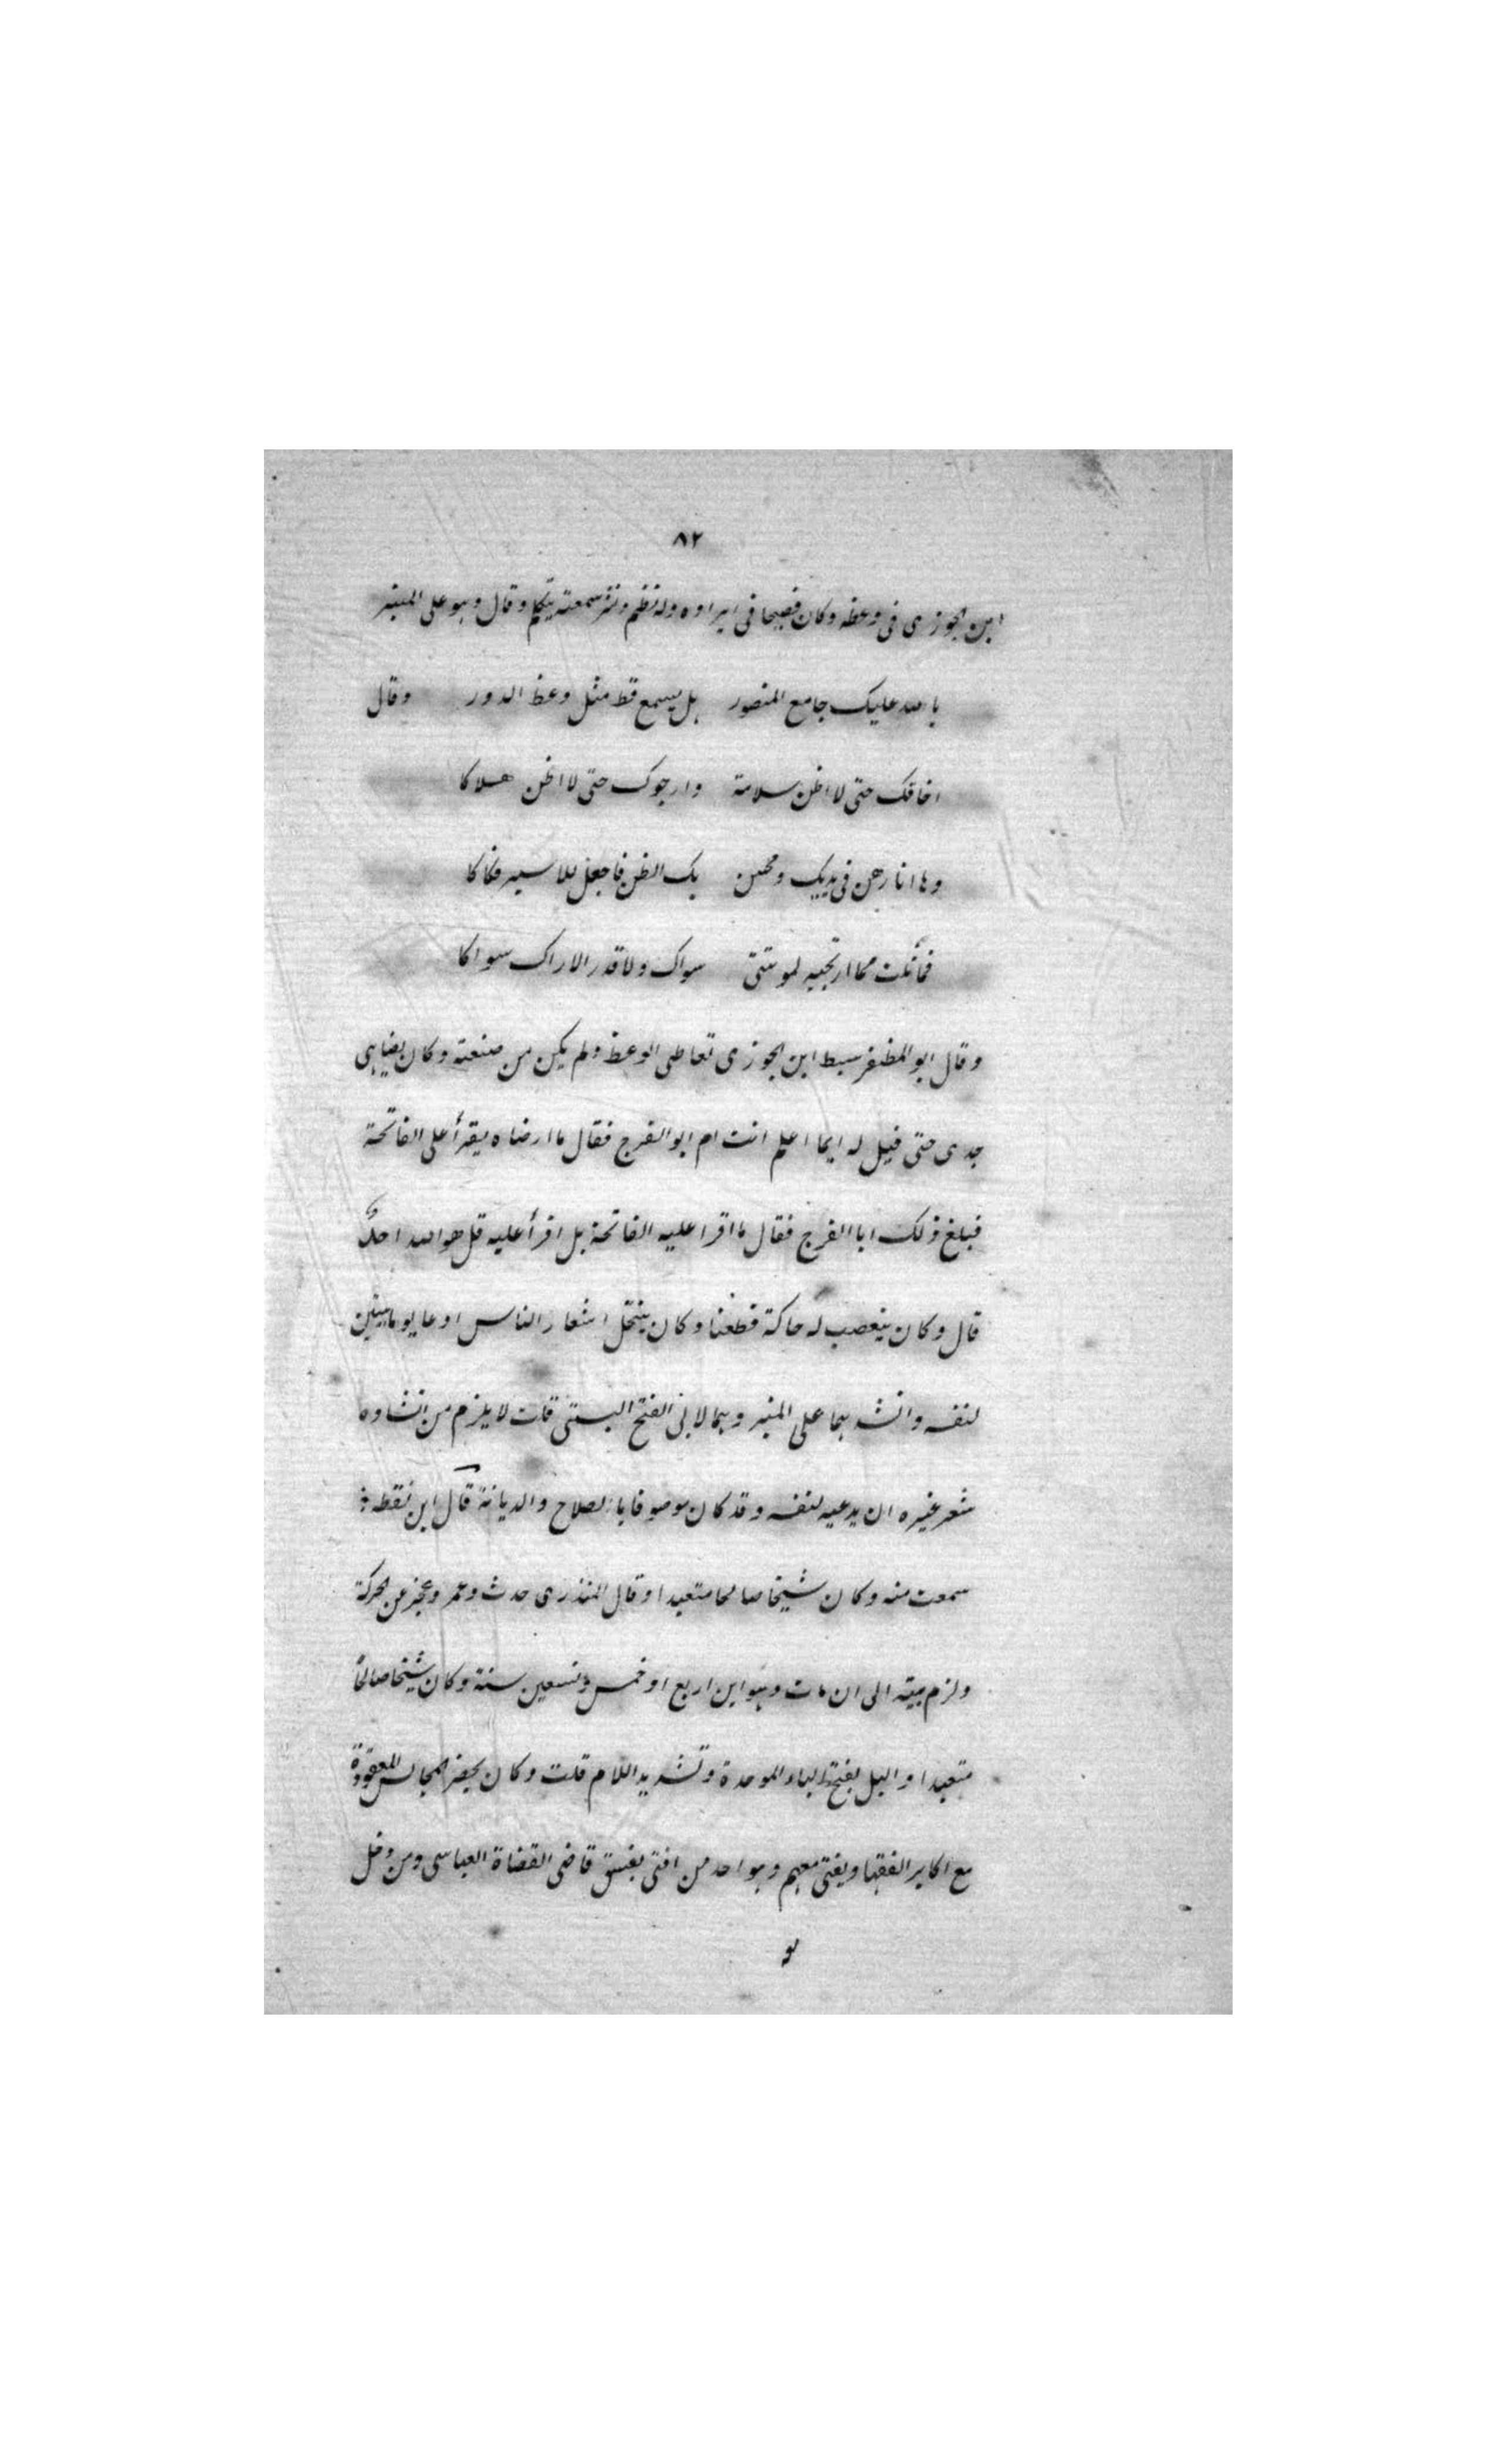 ٨٢
ابن الجوزى فى وعظه وكان فصيحا فى ايراده وله نظم ونثر سمعته يتكلم وقال وهو على المنبر
بالله عليك جامع المنصور هل يسمع قط مثل وعظ الدور وقال
اخافك حتى لا اظن سلامة وارجوك حتى لا اظن هلاكا
وها انا رهن فى يديك ومحسن بك الظن فاجعل للاسير فكاكا
سواك ولا قدر الاراك سواكا
وقال ابو المظفر سبط ابن الجوزى تعاطى الوعظ ولم يكن من صنعته وكان يضاهى
جدى حتى قيل له ايما اعلم انت ام ابو الفرج فقال ما ارضاه يقرأ على الفاتحة
فبلغ ذلك ابا الفرج فقال ما اقرا عليه الفاتحة بل اقرأ عليه قل هو الله احدٌ
قال وكان يتعصب له حاكة قطفتا وكان ينتحل اشعار الناس ادعا يوما بيتين
لنفسه وانشد بهما على المنبر وهما لابى الفتح البستى قلت لا يلزم من انشاده
شعر غيره ان يدعيه لنفسه وقد كان موصوفا بالصلاح والديانة قال ابن نقطه
سمعت منه وكان شيخا صالحا متعبدا وقال المنذرى حدث وعمر وعجز عن الحركة
ولزم بيته الى ان مات وهو ابن اربع او خمس وتسعين سنة وكان شيخا صالحاً
متعبدا والبل بفتح الباء الموحدة وتشديد اللام قلت وكان يحضر المجالس المعقودة
مع اكابر الفقها ويفتى معهم وهو احد من افتى بفسق قاضى القضاة العباسى ومن دخل